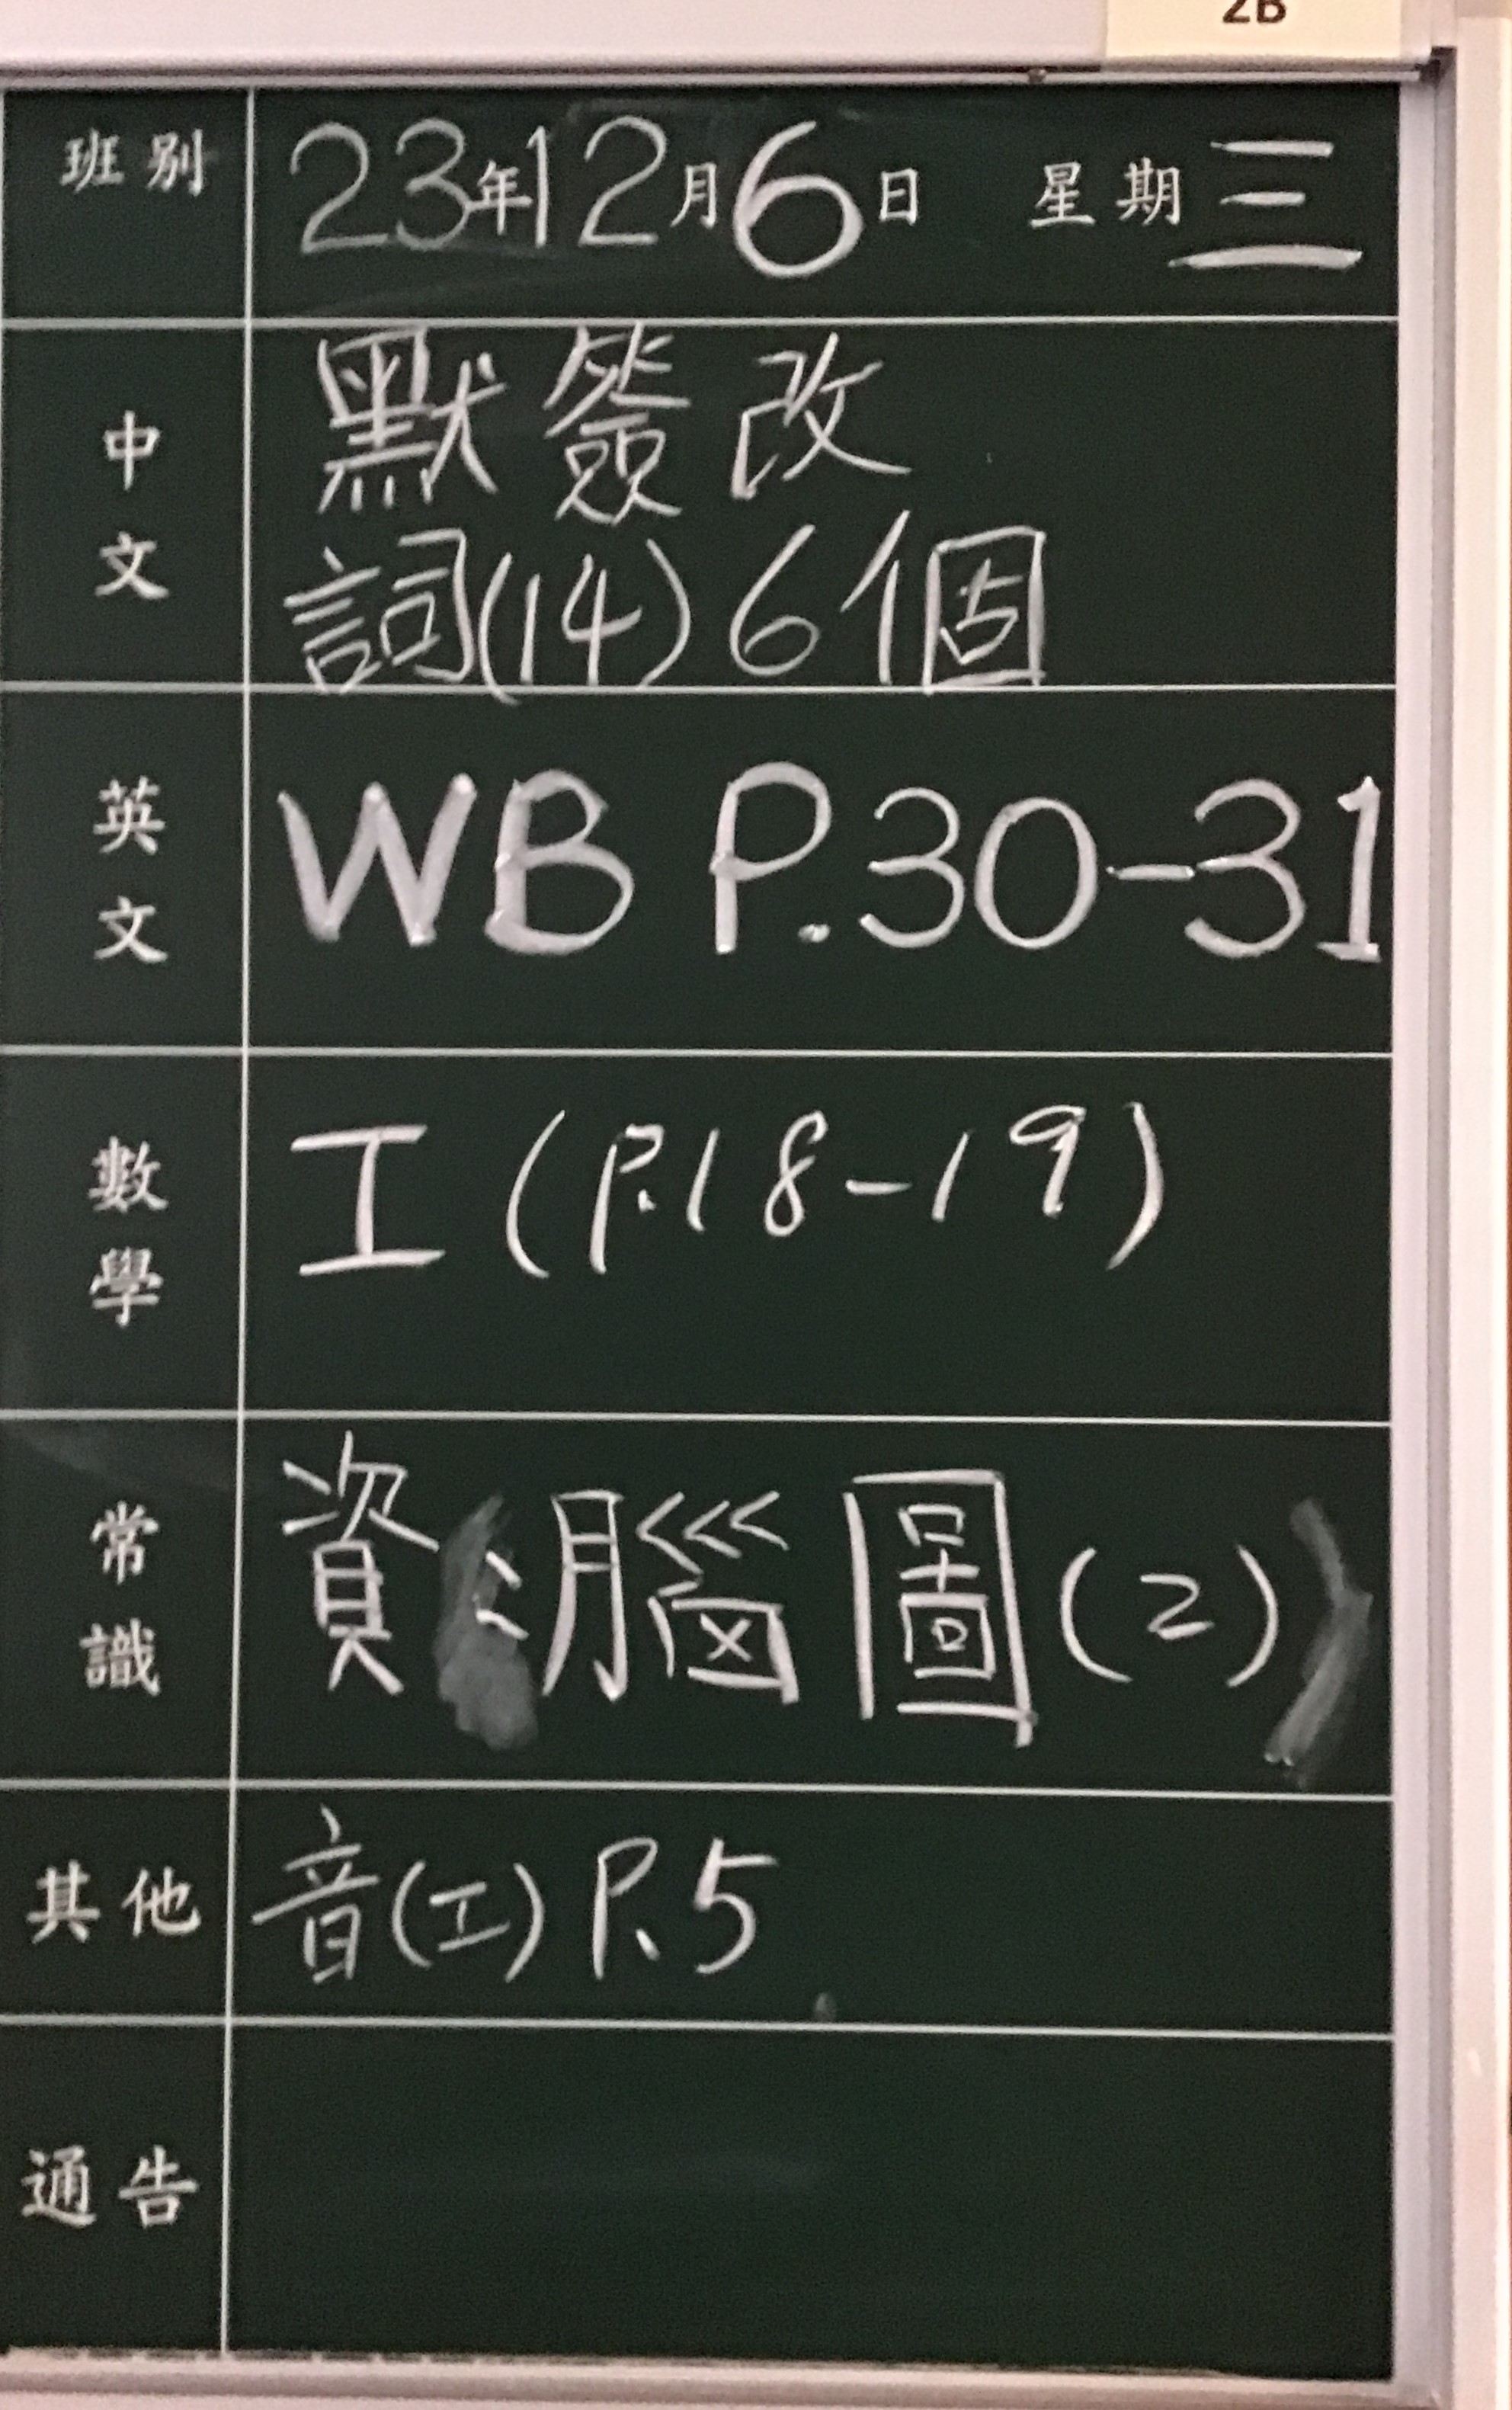 2B
班別 23年12月6日 星期三
中文 默簽改
詞(14)6個
英文 WB P.30-31
數學 工(P.18-19)
常識 資:腦圖(2)
其他 音(工)P.5
通告